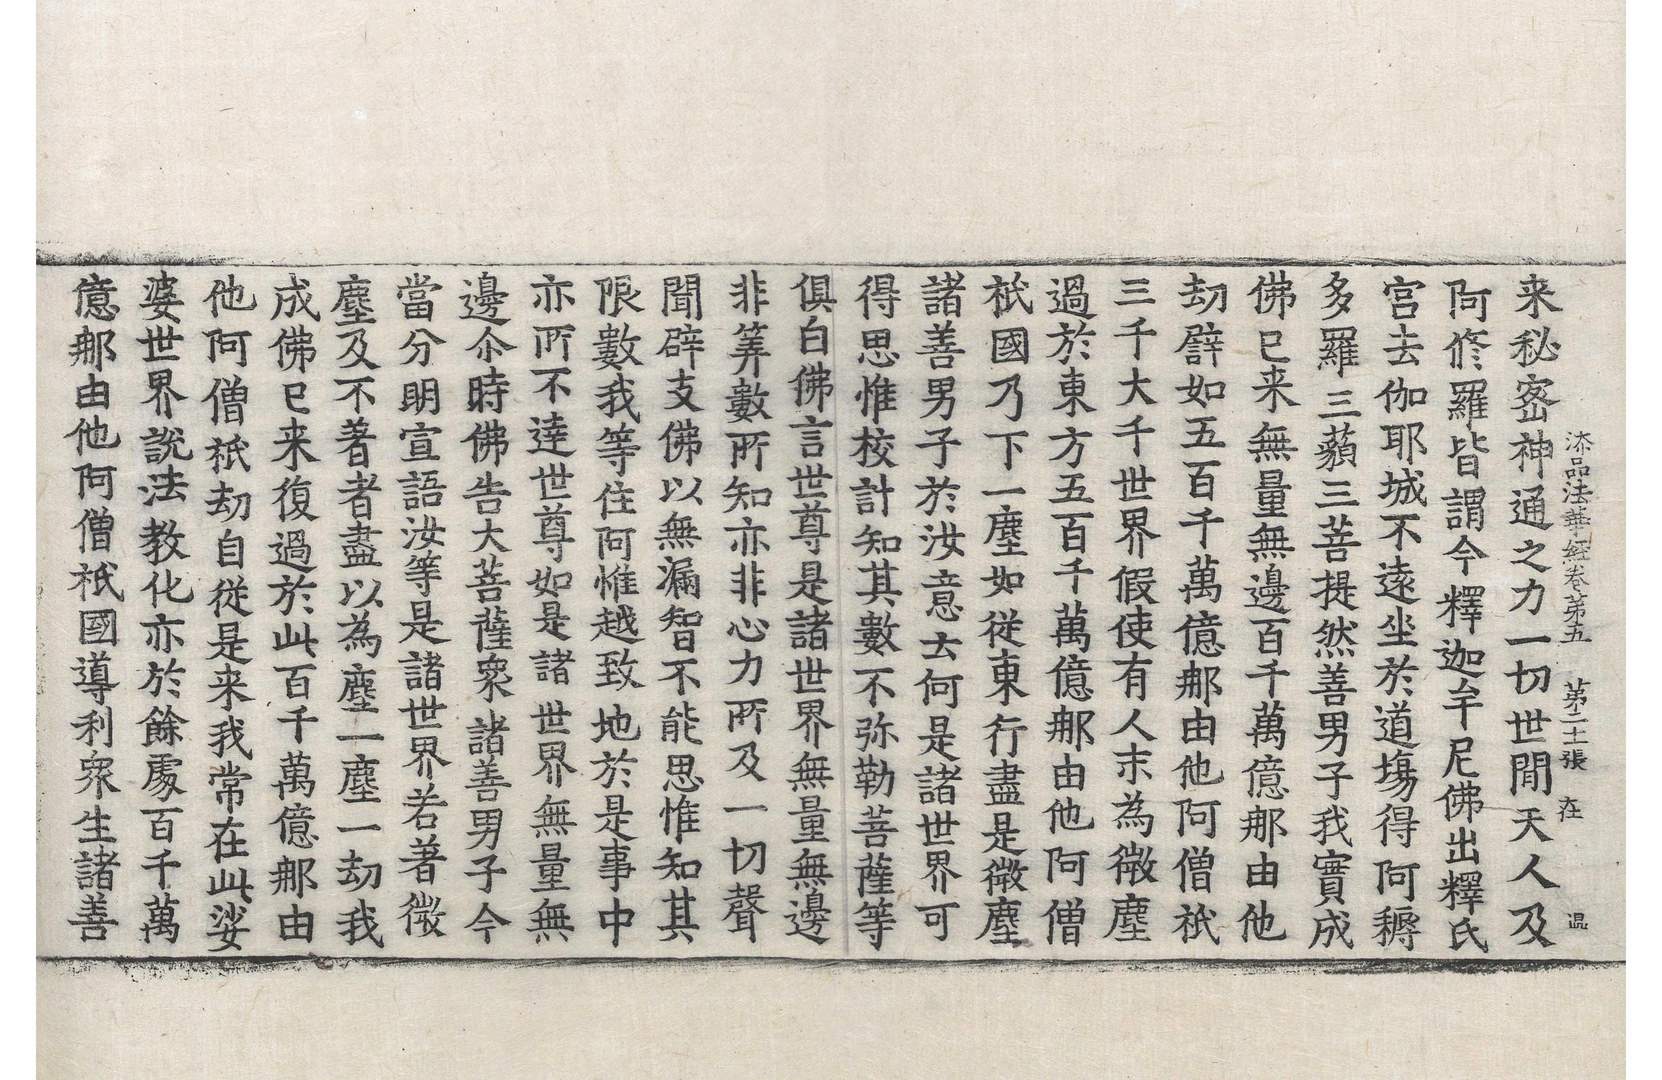 添品法華経卷第五 第二十張 在 温
来秘密神通之力一切世間天人及
阿修羅皆謂今釋迦牟尼佛出釋氏
宮去伽耶城不遠坐於道場得阿耨
多羅三藐三菩提然善男子我實成
佛已来無量無邊百千萬億那由他
劫譬如五百千萬億那由他阿僧祇
三千大千世界假使有人末為微塵
過於東方五百千萬億那由他阿僧
祇國乃下一塵如從東行盡是微塵
諸善男子於汝意去何是諸世界可
得思惟校計知其數不弥勒菩薩等
俱白佛言世尊是諸世界無量無邊
非筭數所知亦非心力所及一切聲
聞辟支佛以無漏智不能思惟知其
限數我等住阿惟越致地於是事中
亦所不達世尊如是諸世界無量無
邊尒時佛告大菩薩衆諸善男子今
當分明宣語汝等是諸世界若著微
塵及不著者盡以為塵一塵一劫我
成佛已来復過於此百千萬億那由
他阿僧祇劫自從是来我常在此娑
婆世界說法教化亦於餘處百千萬
億那由他阿僧祇國導利衆生諸善